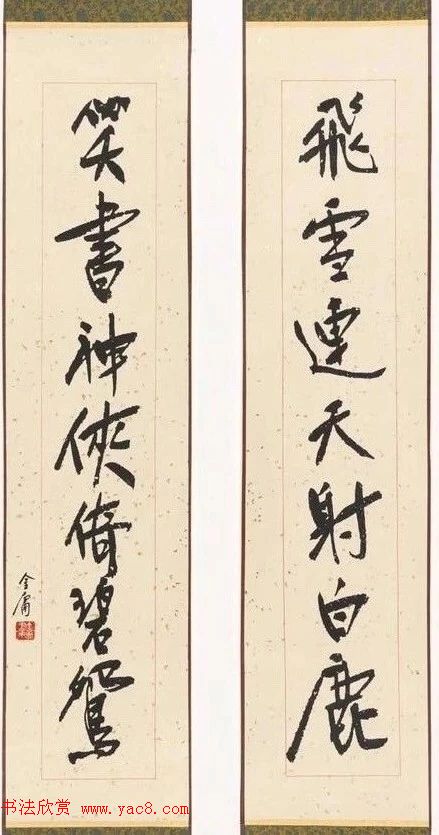 飛雪連天射白鹿
笑書神俠倚碧鴛
金庸
书法欣赏 www.yac8.com